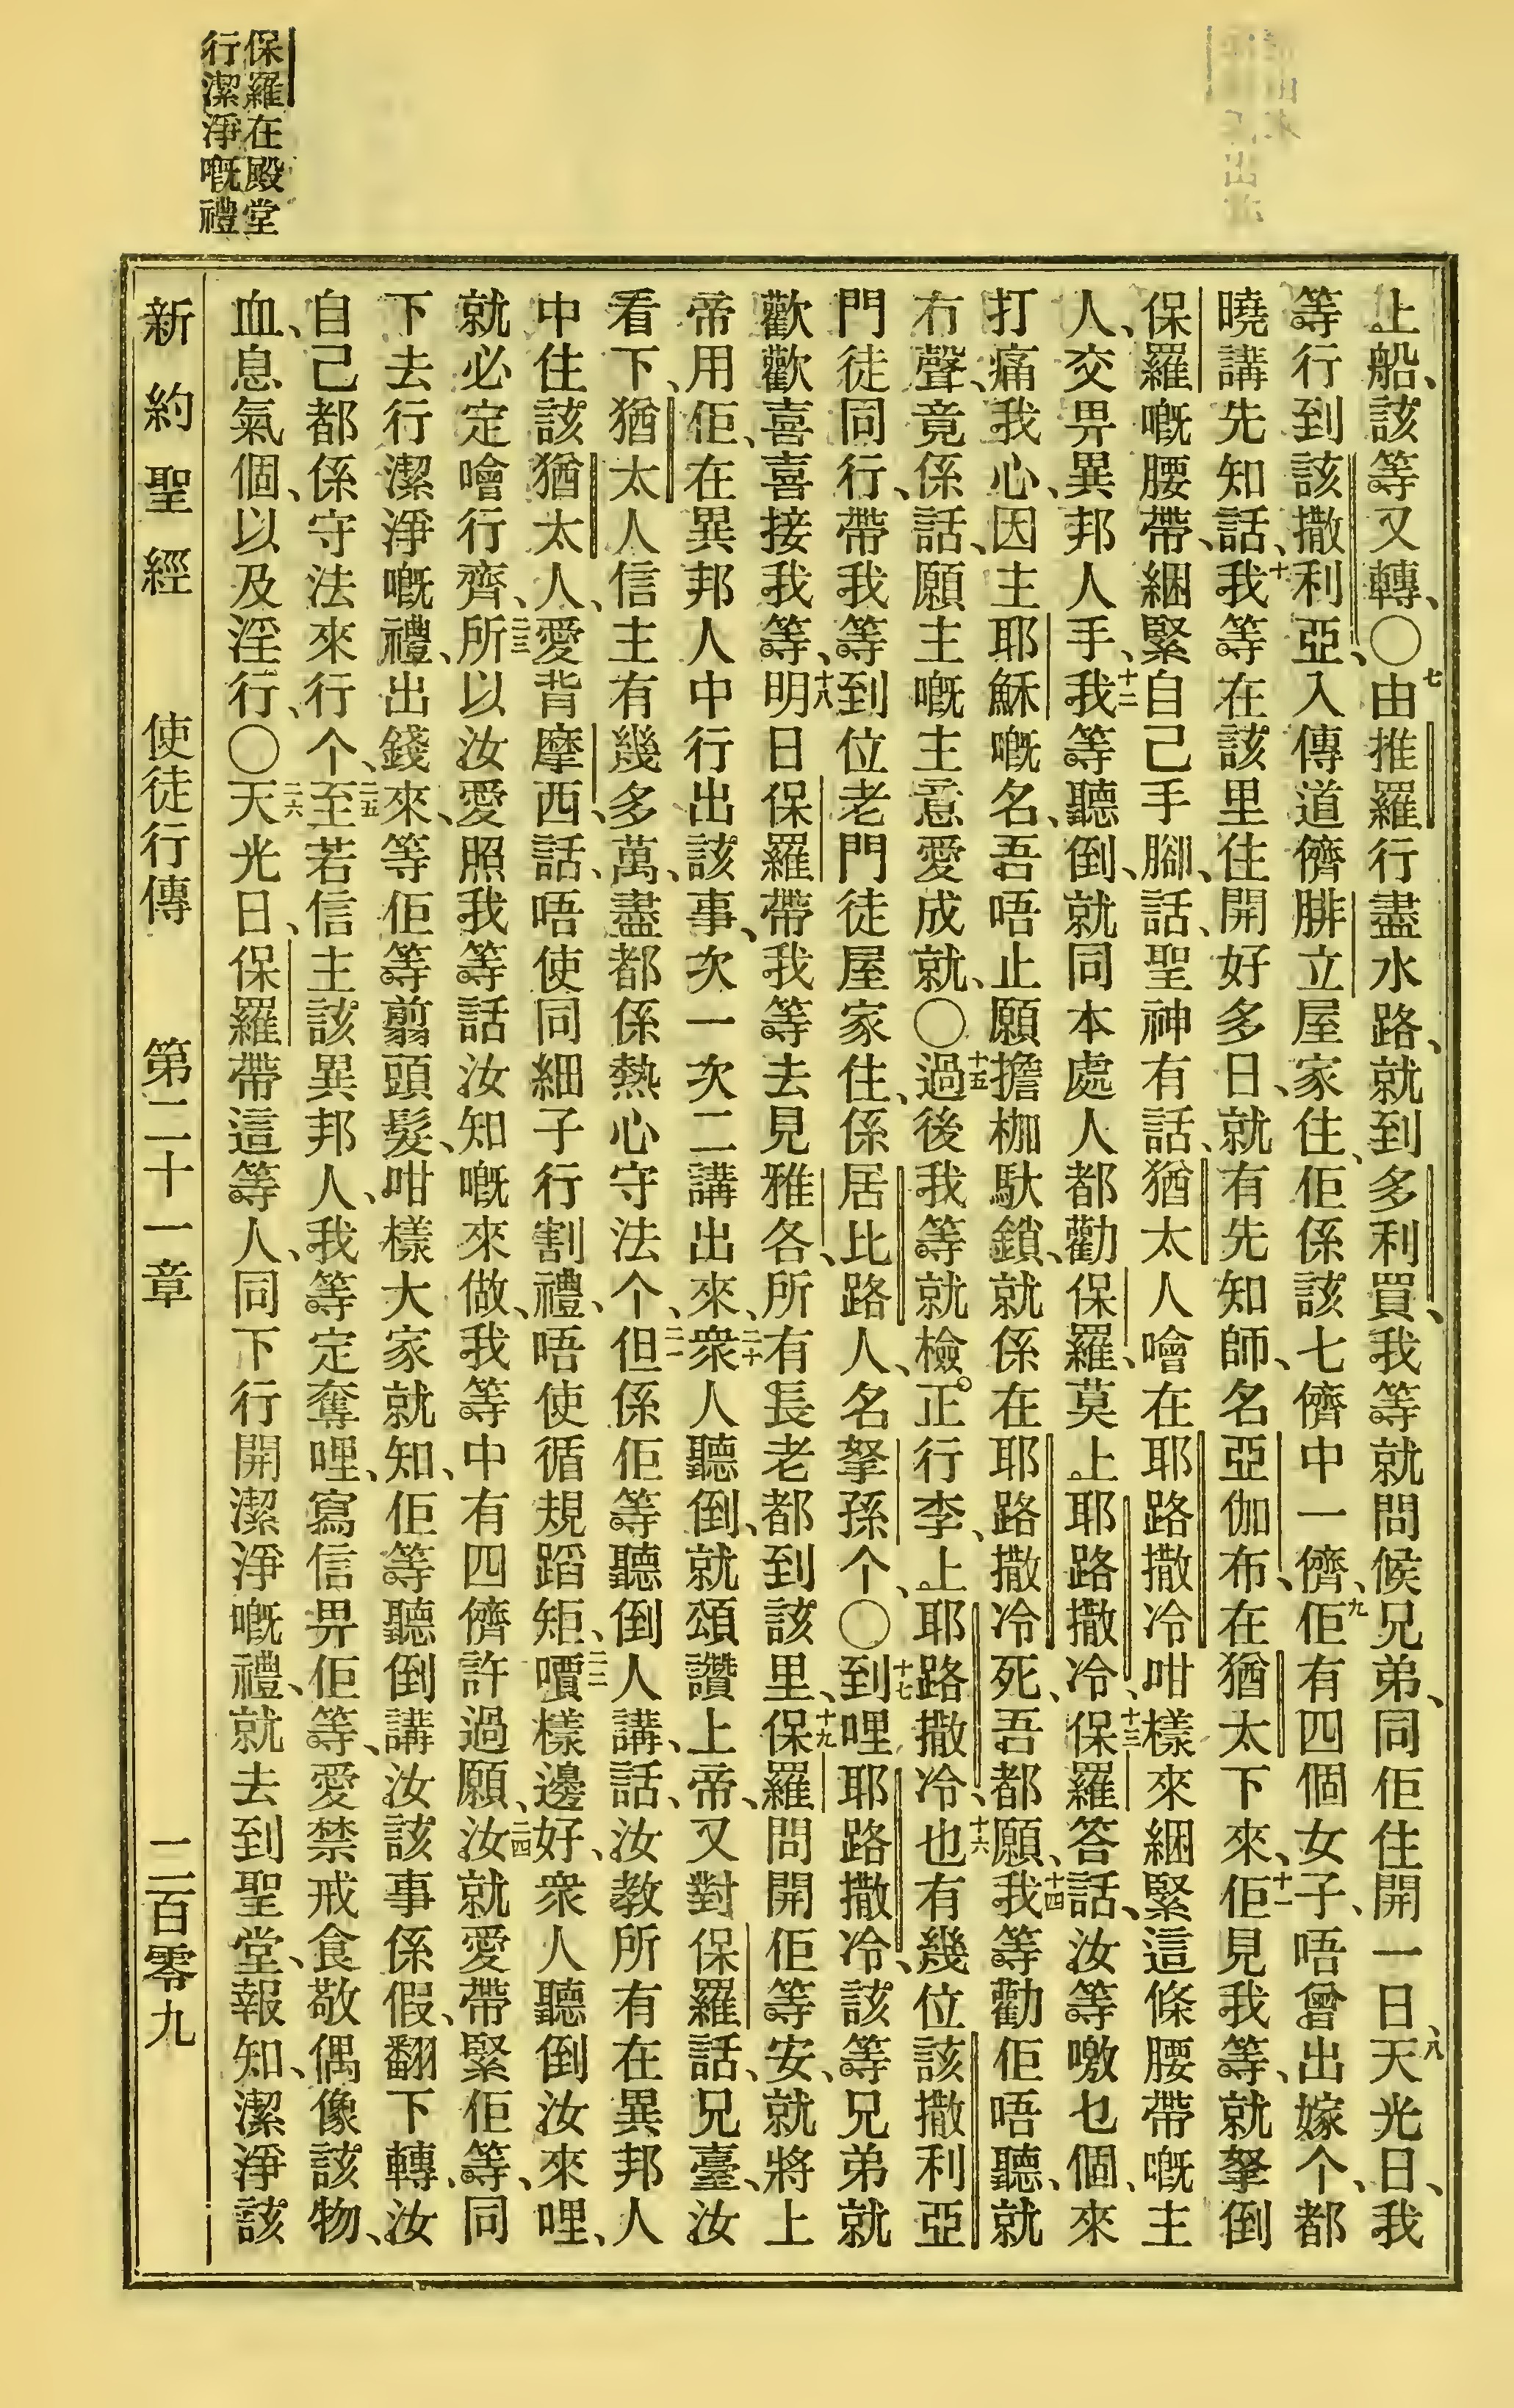 保羅在殿堂
行潔淨嘅禮
上船、該等又轉、〇七由推羅行盡水路、就到多利買、我等就問候兄弟、同佢住開一日、八天光日、我
等行到該撒利亞、入傳道儕腓立屋家住、佢係該七儕中一儕、九佢有四個女子、唔曾出嫁个、都
曉講先知話、十我等在該里住開好多日、就有先知師、名亞伽布、在猶太下來、十一佢見我等、就拏倒
保羅嘅腰帶、綑緊自己手腳、話、聖神有話、猶太人噲在耶路撒冷咁樣來綑緊這條腰帶嘅主
人、交畀異邦人手、十二我等聽倒、就同本處人都勸保羅、莫上耶路撒冷、十三保羅答話、汝等噭乜個、來
打痛我心、因主耶穌嘅名、吾唔止願擔枷馱鎖、就係在耶路撒冷死、吾都願、十四我等勸佢唔聽、就
冇聲、竟係話、願主嘅主意愛成就、〇十五過後我等就檢正行李、上耶路撒冷、十六也有幾位該撒利亞
門徒同行、帶我等到位老門徒屋家住、係居比路人、名拏孫个、〇十七到哩耶路撒冷、該等兄弟就
歡歡喜喜接我等、十八明日保羅帶我等去見雅各、所有長老都到該里、十九保羅問開佢等安、就將上
帝用佢、在異邦人中行出該事、次一次二講出來、二十衆人聽倒、就頌讚上帝、又對保羅話、兄臺、汝
看下、猶太人信主有幾多萬、盡都係熱心守法个、二一但係佢等聽倒人講、話、汝教所有在異邦人
中住該猶太人、愛背摩西、話、唔使同細子行割禮、唔使循規蹈矩、二二嘳樣邊好、衆人聽倒汝來哩、
就必定噲行齊、二三所以汝愛照我等話汝知嘅來做、我等中有四儕許過願、二四汝就愛帶緊佢等、同
下去行潔淨嘅禮、出錢來、等佢等翦頭髮、咁樣大家就知、佢等聽倒講汝該事係假、翻下轉、汝
自己都係守法來行个、二五至若信主該異邦人、我等定奪哩、寫信畀佢等、愛禁戒食敬偶像該物、
血、息氣個、以及淫行、〇二六天光日、保羅帶這等人、同下行開潔淨嘅禮、就去到聖堂、報知、潔淨該
新約聖經 使徒行傳 第二十一章 二百零九